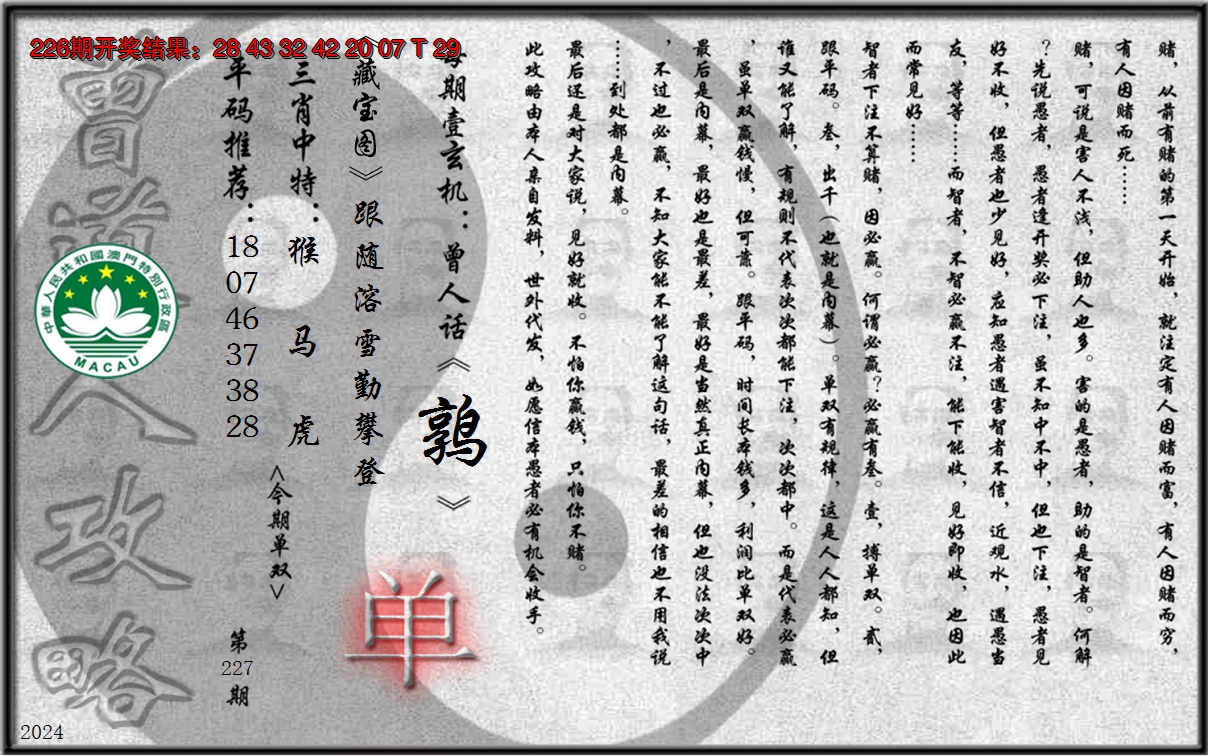 226期开奖结果：28 43 32 42 20 07 T 29
赌，从前有赌的第一天开始，就注定有人因赌而富，有人因赌而穷，
有人因赌而死……
赌，可说是害人不浅，但助人也多。害的是愚者，助的是智者。何解
？先说愚者，愚者逢开奖必下注，虽不知中不中，但也下注，愚者见
好不收，但愚者也少见好，应知愚者遇害智者不信，近观水，遇愚当
友，等等……而智者，不智必赢不注，能下能收，见好即收，也因此
而常见好……
智者下注不算赌，因必赢。何谓必赢？必赢有叁。壹，搏单双。贰，
跟平码。叁，出千（也就是内幕）。单双有规律，这是人人都知，但
谁又能了解，有规则不代表次次都能下注，次次都中。而是代表必赢
，虽单双赢钱慢，但可靠。跟平码，时间长本钱多，利润比单双好。
最后是内幕，最好也是最差，最好是当然真正内幕，但也没法次次中
，不过也必赢，不知大家能不能了解这句话，最差的相信也不用我说
……到处都是内幕。
最后还是对大家说，见好就收。不怕你赢钱，只怕你不赌。
此攻略由本人亲自发料，世外代发，如愿信本愚者必有机会收手。
每期壹玄机：曾人话《鹑》
《藏宝图》跟随溶雪勤攀登
单
三肖中特：猴 马 虎
<今期单双>
平码推荐：18 07 46 37 38 28
第227期
曾道人攻略
中華人民共和國澳門特別行政區
MACAU
2024